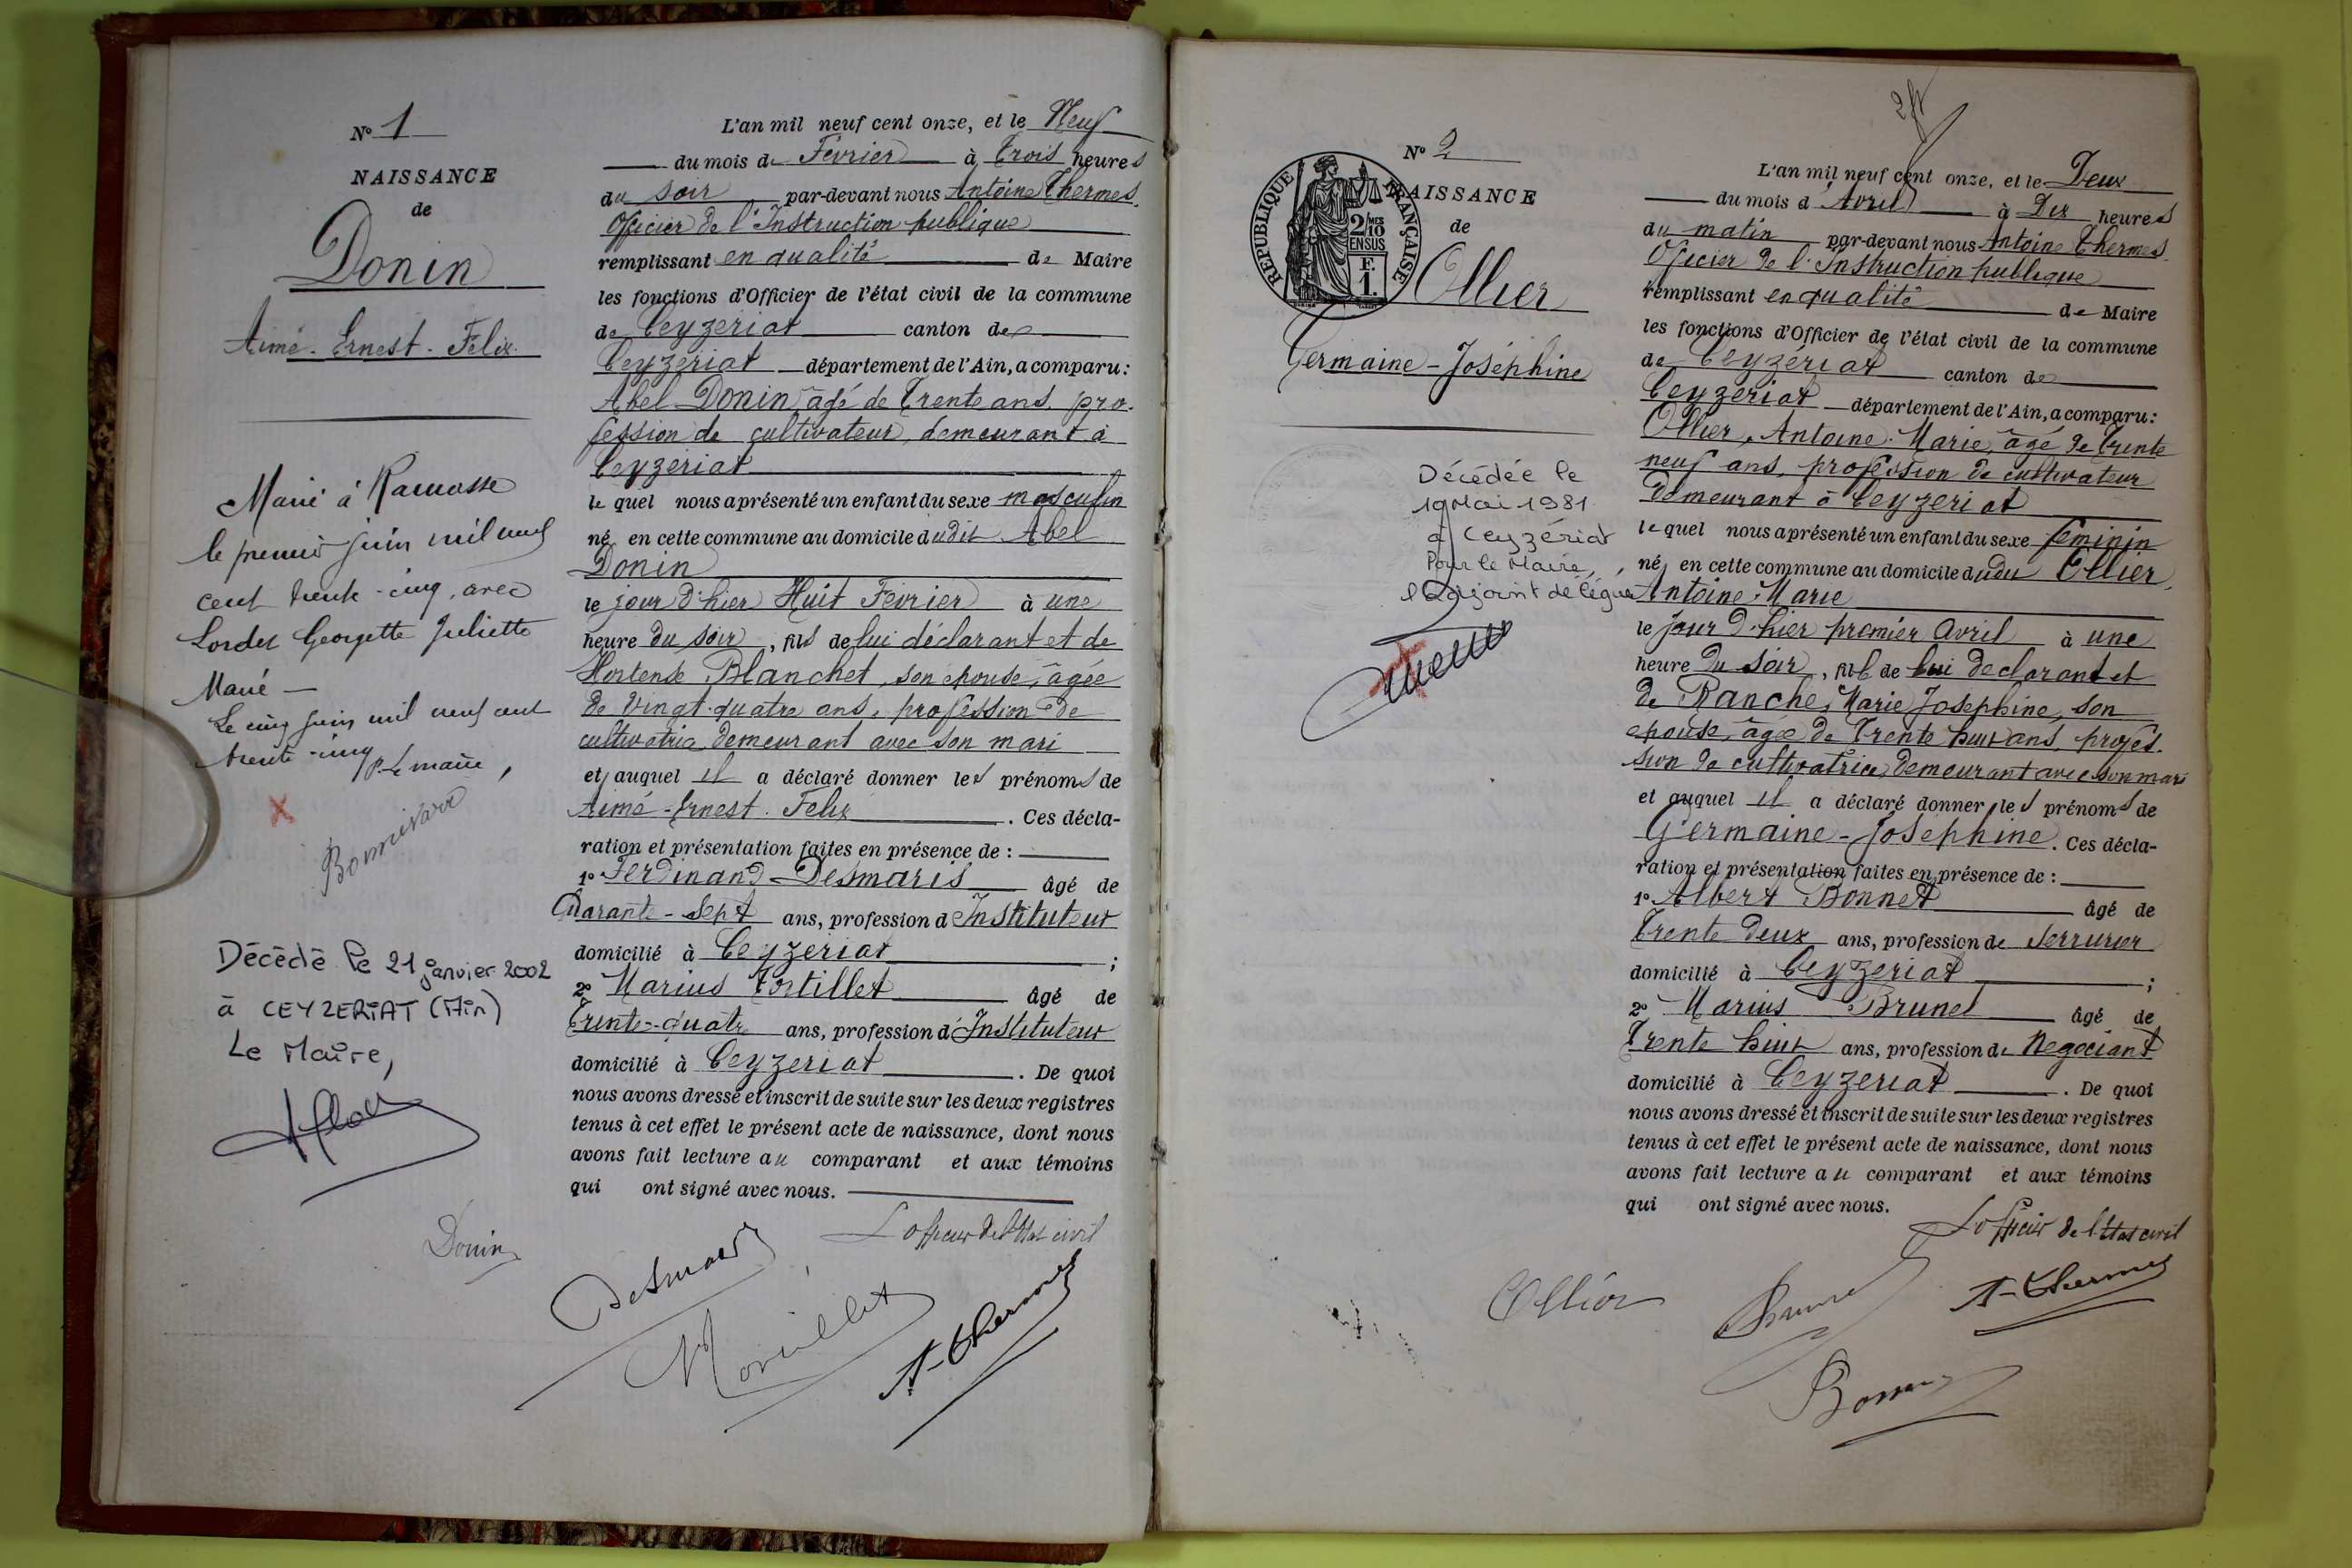 N° 1
NAISSANCE
de
Donin
Aimé-Ernest-Félix
Marié à Ramasse
le premier juin mil neuf
cent trente-cinq, avec
Georgette Juliette
Marié —
Le cinq juin mil neuf cent
trente-cinq
P. le maire,
Décédé le 21 janvier 2002
à CEYZERIAT (Ain)
Le Maire,
L'an mil neuf cent onze, et le Neuf
du mois de Février à trois heures
du soir par-devant nous Antoine Thermes
Officier de l'Instruction publique
remplissant en qualité de Maire
les fonctions d'Officier de l'état civil de la commune
de Ceyzeriat canton de
Ceyzériat département de l'Ain, a comparu :
Abel Donin âgé de Trente ans, pro-
fession de cultivateur, demeurant à
Ceyzeriat
lequel nous a présenté un enfant du sexe masculin
né en cette commune au domicile dudit Abel
Donin
le jour d'hier Huit Février à une
heure du soir, fils de lui déclarant et de
Hortense Blanchet, son épouse, âgée
de vingt-quatre ans, profession de
cultivatrice demeurant avec son mari
et auquel il a déclaré donner les prénoms de
Aimé-Ernest-Felix. Ces décla-
ration et présentation faites en présence de :
1° Ferdinand Desmaris âgé de
Quarante-Sept ans, profession d'Instituteur
domicilié à Ceyzeriat ;
2° Marius âgé de
Trente-quatre ans, profession d'Instituteur
domicilié à Ceyzeriat. De quoi
nous avons dressé et inscrit de suite sur les deux registres
tenus à cet effet le présent acte de naissance, dont nous
avons fait lecture au comparant et aux témoins
qui ont signé avec nous.
L'officier de l'Etat civil
Donin
Desmaris
A. Thermes
2
N° 2
NAISSANCE
de
Ollier
Germaine-Joséphine
REPUBLIQUE FRANÇAISE
2/10 MES
EN SUS
F.
1.
Décédée le
19 Mai 1981
à Ceyzériat
Pour le Maire,
l'adjoint délégué
L'an mil neuf cent onze, et le Deux
du mois d'Avril à Dix heures
du matin par-devant nous Antoine Thermes
Officier de l'Instruction publique
remplissant en qualité de Maire
les fonctions d'Officier de l'état civil de la commune
de Ceyzériat canton de
Ceyzeriat département de l'Ain, a comparu :
Ollier, Antoine-Marie, âgé de Trente
neuf ans, profession de cultivateur
demeurant à Ceyzeriat
lequel nous a présenté un enfant du sexe féminin
né en cette commune au domicile dudit Ollier,
Antoine-Marie
le jour d'hier premier Avril à une
heure du soir, fille de lui declarant et
de Ranche, Marie Josephine, son
épouse, âgée de Trente huit ans, profes-
sion de cultivatrice, demeurant avec son mari
et auquel il a déclaré donner les prénoms de
Germaine-Joséphine. Ces décla-
ration et présentation faites en présence de :
1° Albert Bonnet âgé de
Trente deux ans, profession de Serrurier
domicilié à Ceyzeriat ;
2° Marius Brunet âgé de
Trente huit ans, profession de Negociant
domicilié à Ceyzeriat. De quoi
nous avons dressé et inscrit de suite sur les deux registres
tenus à cet effet le présent acte de naissance, dont nous
avons fait lecture au comparant et aux témoins
qui ont signé avec nous.
L'officier de l'Etat civil
Ollier
A. Thermes